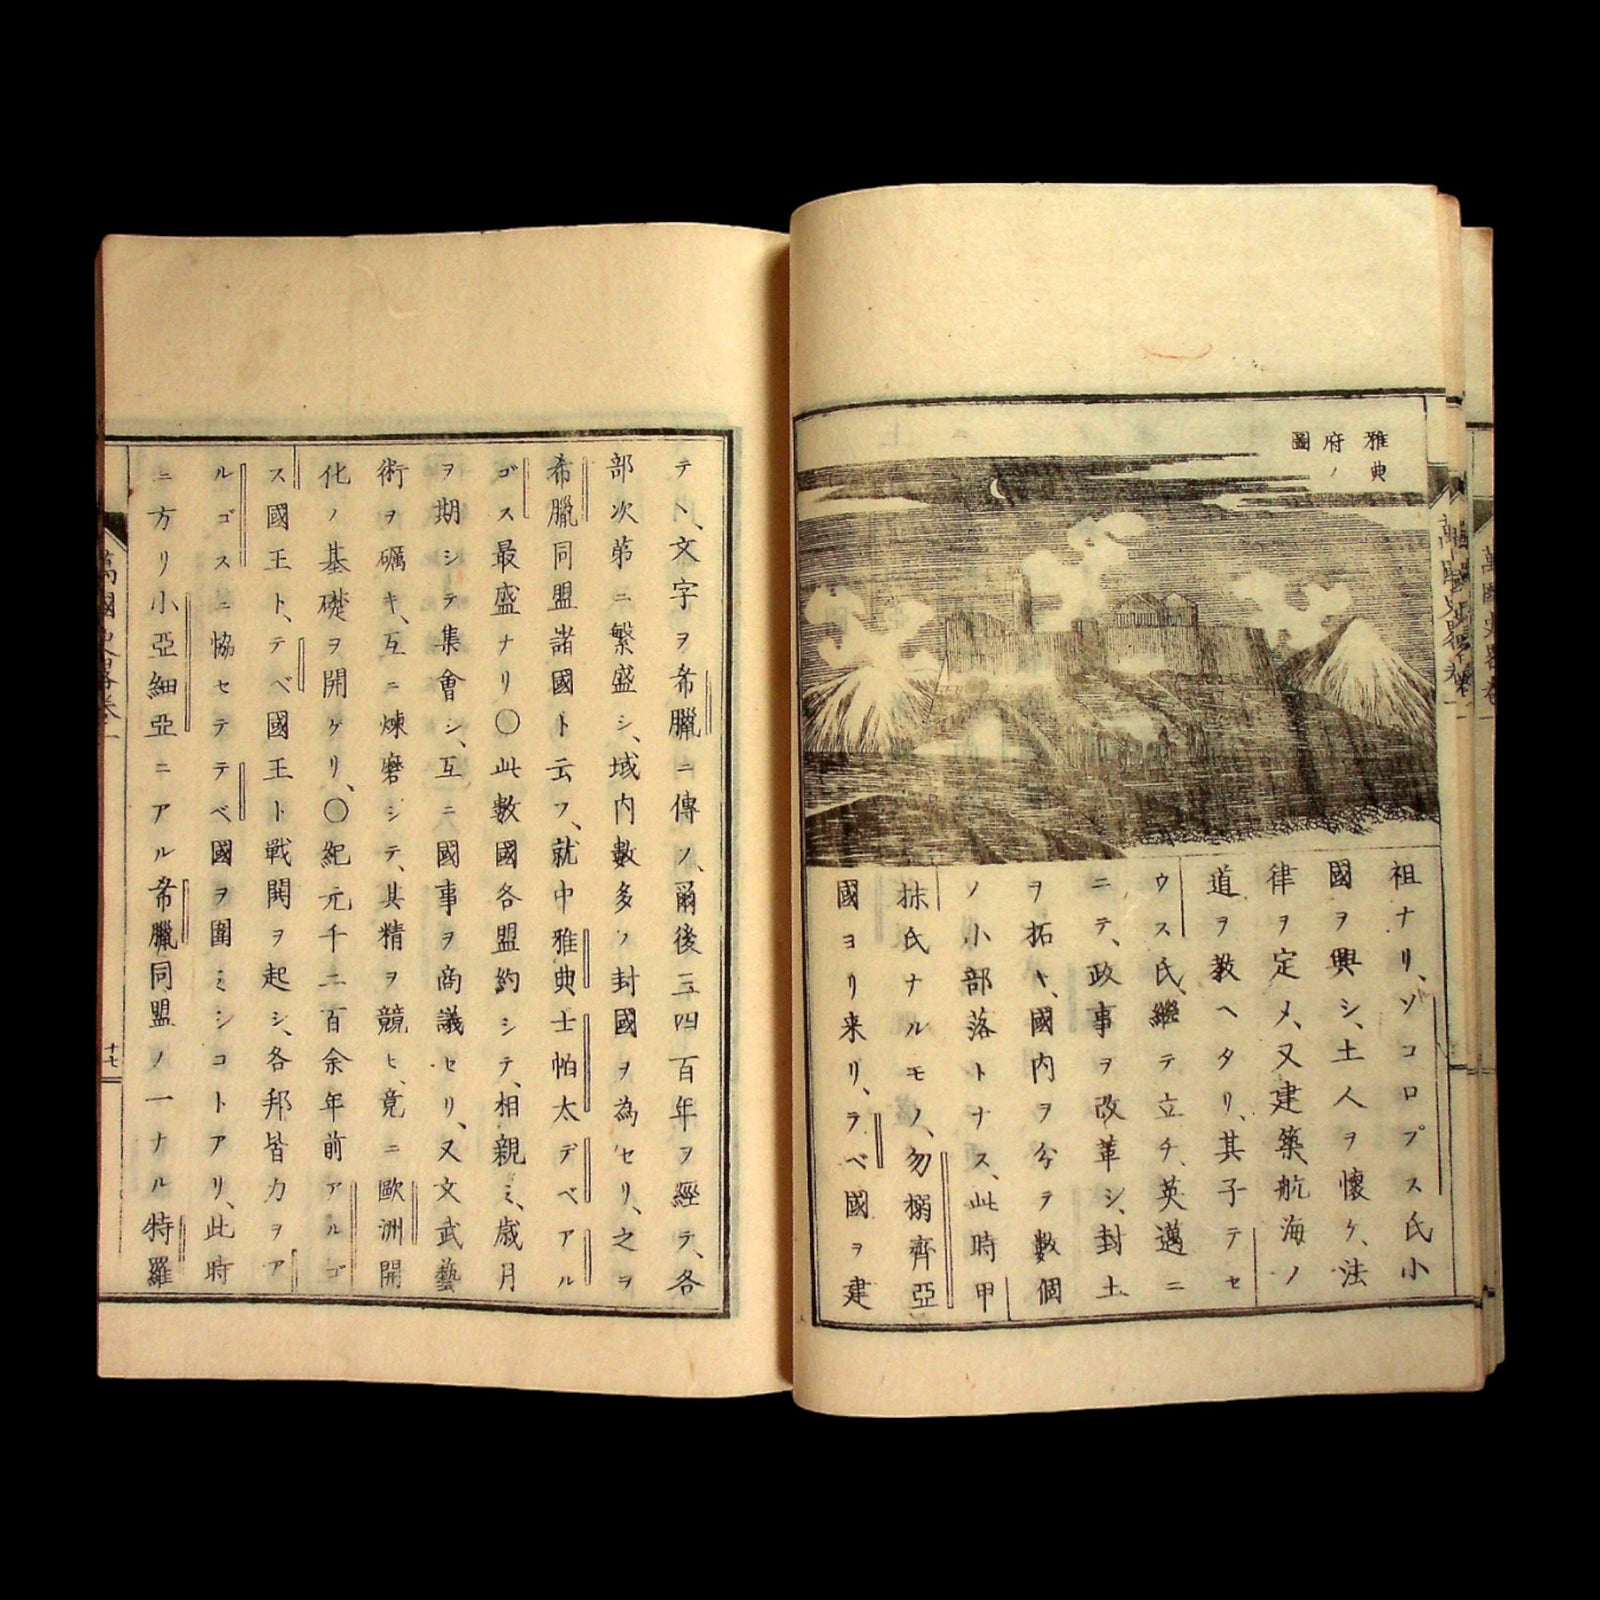 雅典
府ノ
圖
祖ナリ、ソコロプス氏小
國ヲ興シ、土人ヲ懷ケ、法
律ヲ定メ、又建築航海ノ
道ヲ教ヘタリ、其子テセ
ウス氏、繼テ立チ、英邁ニ
ニテ、政事ヲ改革シ、封土
ヲ拓キ、國内ヲ分ヲ數個
ノ小部落トナス、此時甲
抹氏ナルモノ、勿搦齊亞
國ヨリ来リ、ラベ國ヲ建
テヽ、文字ヲ希臘ニ傳ノ、爾後三四百年ヲ經テ、各
部次第ニ繁盛シ、域内數多ノ封國ヲ為セリ、之ヲ
希臘同盟諸國ト云フ、就中雅典士帕太デベアル
ゴス最盛ナリ〇此數國各盟約シテ、相親ミ、歳月
ヲ期シテ集會シ、互ニ國事ヲ商議セリ、又文武藝
術ヲ礪キ、互ニ煉磨シテ、其精ヲ競ヒ、竟ニ歐洲開
化ノ基礎ヲ開ケリ、〇紀元千二百余年前アルゴ
ス國王ト、テベ國王ト戦鬪ヲ起シ、各邦皆力ヲア
ルゴスニ協セテテベ國ヲ圍ミシコトアリ、此時
ニ方リ小亞細亞ニアル希臘同盟ノ一ナル特羅
萬國史畧卷一
十七